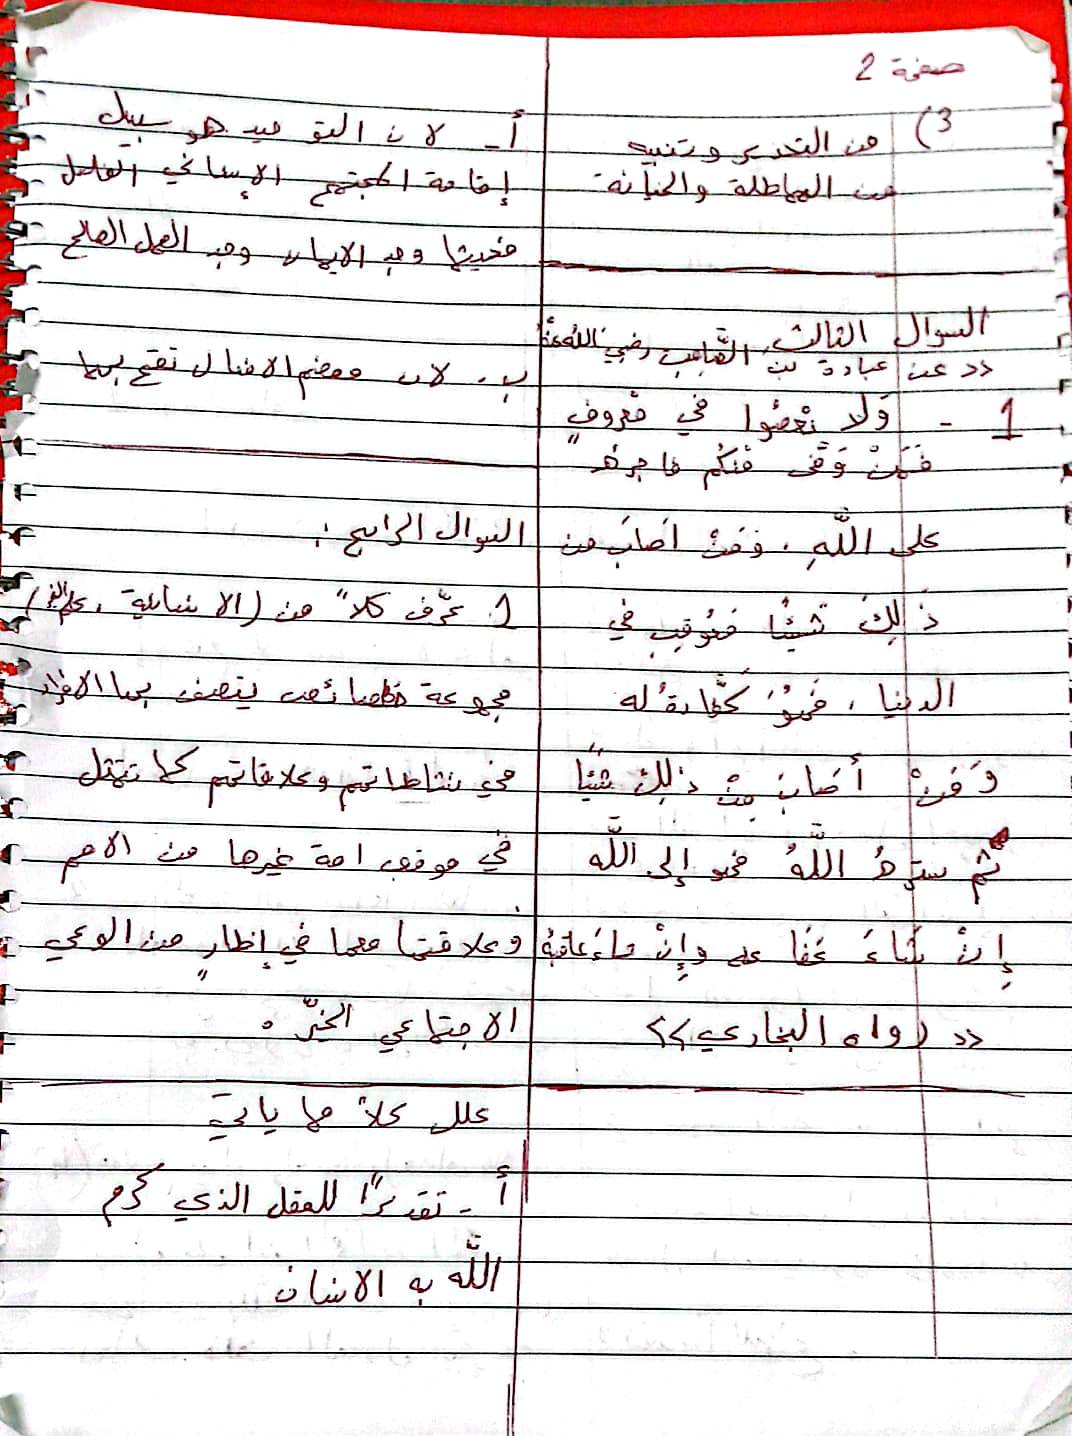 صفحة 2
3) من التحدير وتنبيه
من المماطلة والخيانة.
السوال الثالث:
‹‹ عن عبادة بن الصَّامِت رضي الله عنهُ
1 - وَلا تَعْصُوا في مَعْروفٍ
فَمَنْ وَفَّى مْنكُم فاجرهُ
على اللَّهِ، وَمَنْ اصَابَ من
ذَلِكَ شَيْئًا فَعُوقِبَ في
الدنيا، فَهوُ كَفَّارةُ له
وَمَنْ أصَابَ مِنْ ذلِكَ شَيْئًا
ثُم سترهُ اللَّهُ فهو إلى اللَّه
إِنْ شَاءَ عَفَا عنه وإِنْ شاءَ عاقبهُ
‹‹ رواه البخاري ››
أ- لان التوحيد هو سبيل
إقامة المجتمع الإنساني الفاضل
وجد الايمان وجد العمل الصالح
ب. لان معضم الافعال تقع بهما
السوال الرابع:
1. عرَّف كلاً من (الانسانية،
مجموعة خصائص يتصف بها الافراد
في نشاطاتهم وعلاقاتهم كما تتمثل
في موقف امة غيرها من الامم
وعلاقتها معها في إظارٍ من الوعي
الاجتماعي الخيّر.
علل كلاً مما يأتي
أ- تقديرًا للعقل الذي كرم
اللَّه به الانسان